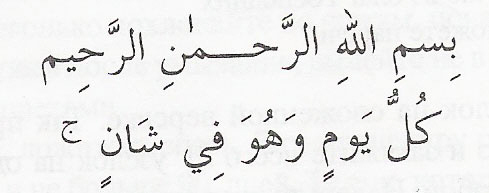 بِسمِ اللهِ الرَّحـــمٰنِ الرَّحِيم
كُلُّ يَومٍ وَهُو فِي شَانٍ ج